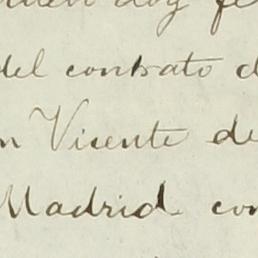 doy fe
del contrato d
n Vicente de
Madrid con